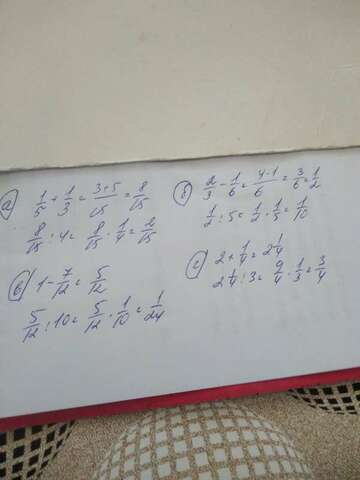 а) 1/5 + 1/3 = 3+5/15 = 8/15
8/15 : 4 = 8/15 · 1/4 = 2/15
б) 2/3 - 1/6 = 4-1/6 = 3/6 = 1/2
1/2 : 5 = 1/2 · 1/5 = 1/10
в) 1 - 7/12 = 5/12
5/12 : 10 = 5/12 · 1/10 = 1/24
г) 2 + 1/4 = 2 1/4
2 1/4 : 3 = 9/4 · 1/3 = 3/4